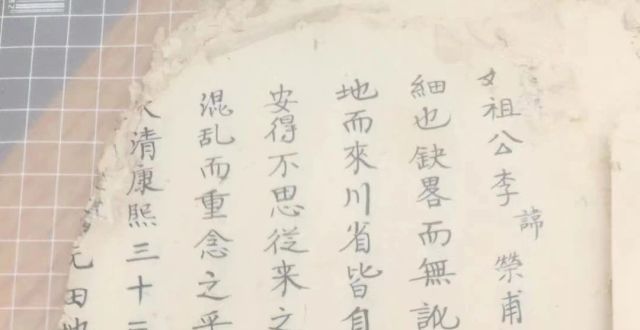 祖公李諱榮甫
細也缺畧而無訛
地而來川省皆自
安得不思從來之
混乱而重念之乎
清康熙三十